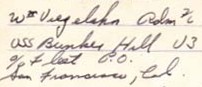 Wm Viegelahn Rdm 3/c
USS Bunker Hill V3
c/o F lest P.O.
San Francisco, Cal.